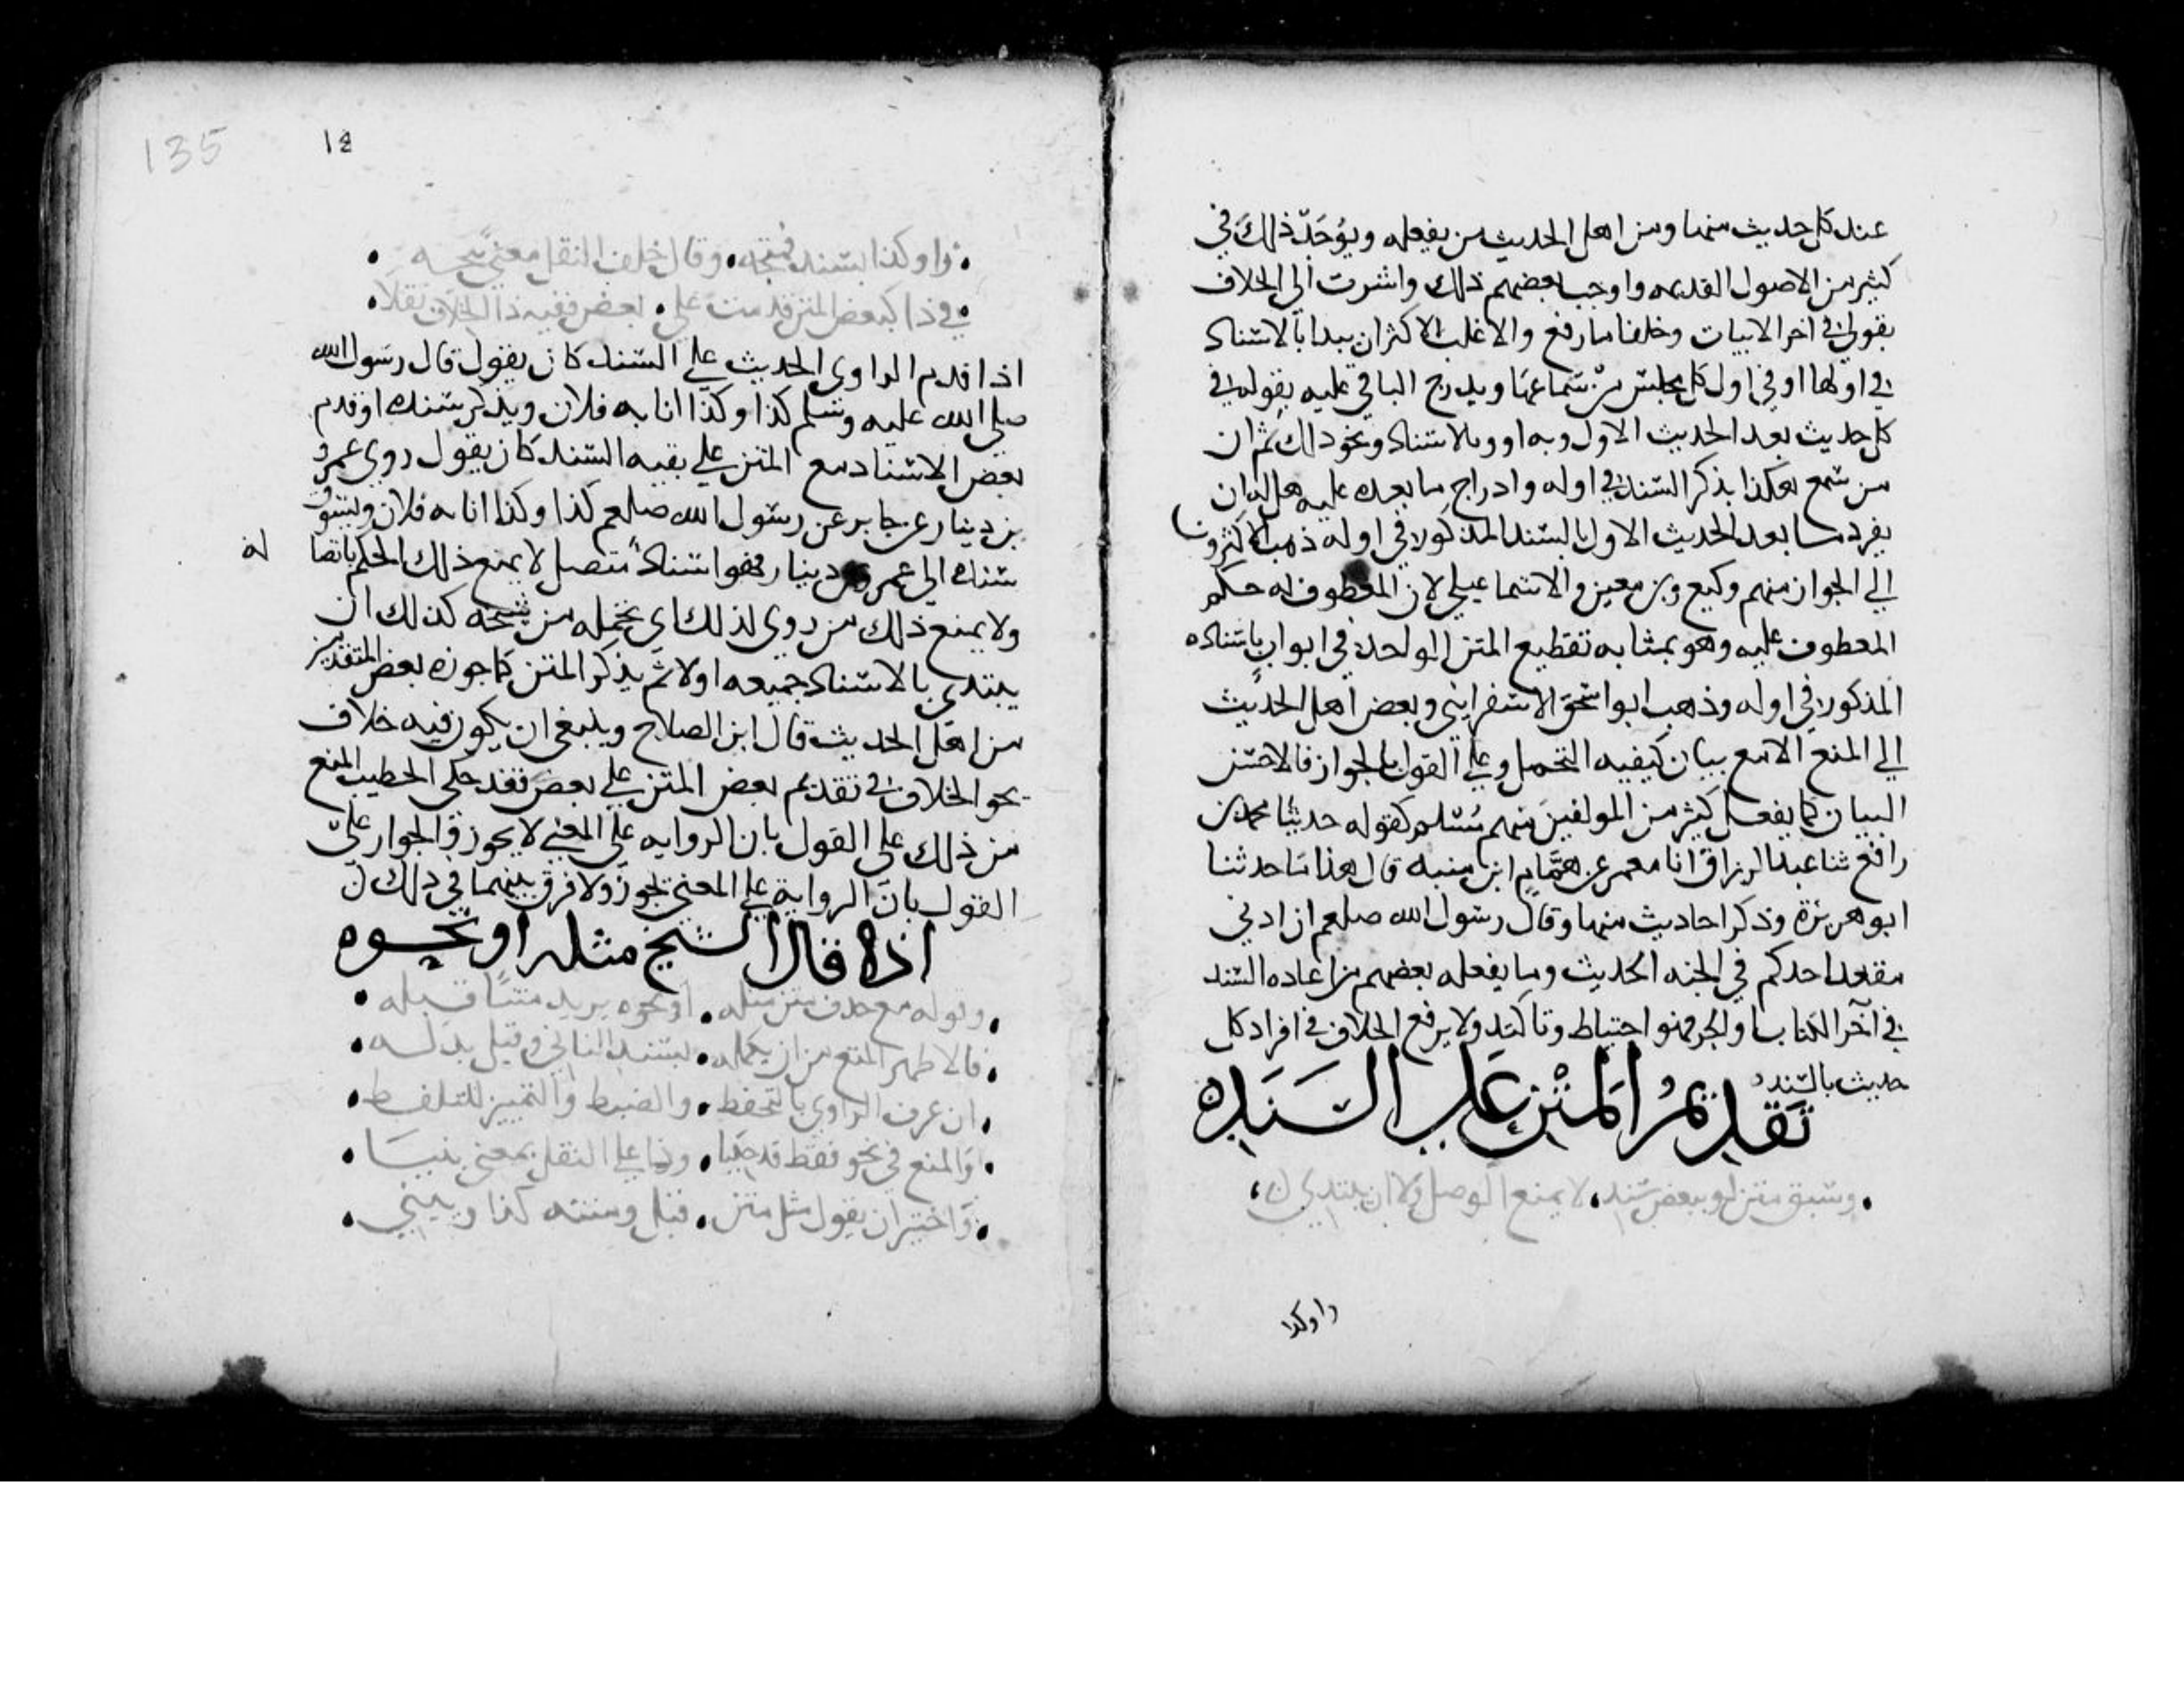 عند كل حديث منها ومن اهل الحديث من يفعله ويوجد ذلك في
كثير من الاصول القديمه واوجب بعضهم ذلك واشرت الي الخلاف
بقولي في اخر الابيات وخلفا ما رفع والاغلب الاكثر ان يبدا بالاسناد
في اولها او في اول كل مجلس من سماعها ويدرج الباقي عليه بقوله في
كل حديث بعد الحديث الاول وبه او وبالاسناد ونحو ذلك ثم ان
من سمع هكذا بذكر السند في اوله وادراج ما بعده عليه هل له ان
يفرد ما بعد الحديث الاول بالسند المذكور في اوله ذهب الاكثرون
الي الجواز منهم وكيع وبن معين والاسماعيلي لان المعطوف له حكم
المعطوف عليه وهو بمثابه تقطيع المتن الواحد في ابواب باسناده
المذكور في اوله وذهب ابو اسحق الاسفرايني وبعض اهل الحديث
الي المنع الا مع بيان كيفيه التحمل وعلي القول بالجواز فالاحسن
البيان كما يفعل كثير من المولفين منهم مسلم كقوله حدثنا محمد بن
رافع ثنا عبد الرزاق انا معمر عن همام ابن منبه قال هذا ما حدثنا
ابو هريرة وذكر احاديث منها وقال رسول الله صلعم ان ادني
مقعد احدكم في الجنه الحديث وما يفعله بعضهم من اعاده السند
في آخر الكتاب او الجزء فهو احتياط وتاكيد ولا يرفع الخلاف في افراد كل
حديث بالسند
تقديم المتن على السند
وسبق متن لو ببعض سند لا يمنع الوصل ولا ان يبتدي
راو كذا
135
14
راو كذا بسند فمتجه وقال خلف النقل معني يتجه
في ذا كبعض المتن قدمت علي بعض ففيه ذا الخلاف نقلا
اذا قدم الراوي الحديث علي السند كان يقول قال رسول الله
صلي الله عليه وسلم كذا وكذا انا به فلان ويذكر سنده او قدم
بعض الاسناد مع المتن علي بقيه السند كان يقول روي عمرو
بن دينار عن جابر عن رسول الله صلعم كذا وكذا انا به فلان ويسوق
سنده الي عمرو بن دينار فهو اسناد متصل لا يمنع ذلك الحكم باتصا
له
ولا يمنع ذلك من روي لذلك اي تحمله من شيخه كذلك ان
يبتدي بالاسناد جميعه اولا ثم يذكر المتن كما جوزه بعض المتقدمين
من اهل الحديث قال ابن الصلاح وينبغي ان يكون فيه خلاف
نحو الخلاف في تقديم بعض المتن علي بعض فقد حكي الخطيب المنع
من ذلك علي القول بان الروايه علي المعني لا يجوز والجواز علي
القول بان الرواية علي المعني تجوز ولا فرق بينهما في ذلك
اذا قال الشيخ مثله او نحوه
وقوله مع حذف متن مثله او نحوه يريد متنا قبله
فالاظهر المنع من ان يكمله بسند الثاني وقيل بل له
ان عرف الراوي بالتحفظ والضبط والتمييز للتلفظ
والمنع في نحو فقط قد حكيا وذا علي النقل بمعني بنيا
واختير ان يقول مثل متن قبل ومتنه كذا ويبني